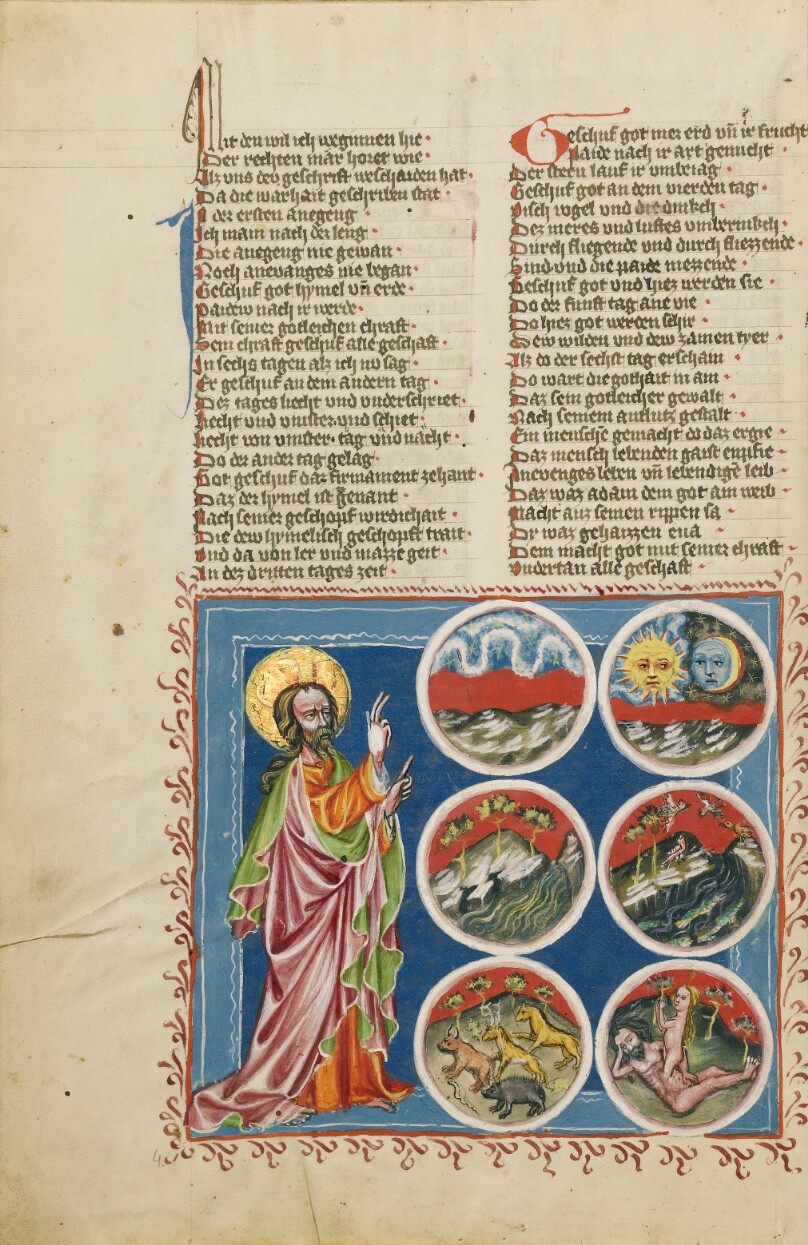 Mit den wil ich weginnen hie
Der rechten mär horet wie
Alz uns dev geschrift weschaiden hat
Da die warhait geschriben stat
In der ersten anegeng
Ich main nach der leng
Die anegeng nie gewan
Noch anevanges nie began
Geschuf got hymel vn̄ erde
Paidew nach ir werde
Mit seiner gotleichen chraft
Sein chraft geschuf alle geschaft
In sechs tagen alz ich nu sag
Er geschuf an dem andern tag
Dez tages liecht und underschriet
Liecht und vinster und schiet
Liecht von vinster tag und nacht
Do der ander tag gelag
Got geschuf daz firmament zehant
Daz der hymel ist genant
Nach seiner geschopf wirdichait
Die dew hymelisch geschopft trait
Und da von ler und mazze geit
An dez dritten tages zeit
Geschuf got mer erd vn̄ ir frucht
Paide nach ir art genucht
Der stern lauf ir umbeiag
Geschuf got an dem vierden tag
Visch vogel und die
Dez meres und luftes
Durch fliegende und durch fliezzende
Sind und die paide mezzende
Geschuf got und hiez werden sie
Do der funft tag ane vie
Do hiez got werden schir
Dew wilden und dew zamen tyer
Alz do der sechst tag erschain
Do wart die gothait in ain
Daz sein gotleicher gewalt
Nach seinem antlutz gestalt
Ein mensche gemacht do daz ergie
Daz mensch lebenden gaist enpfie
Inevenges leben vn̄ lebendigē leib
Daz waz adam dem got ain weib
Macht auz seinen rippen sa
Dr waz gehaizzen eua
Dem macht got mit seiner chraft
Undertan alle geschaft
4